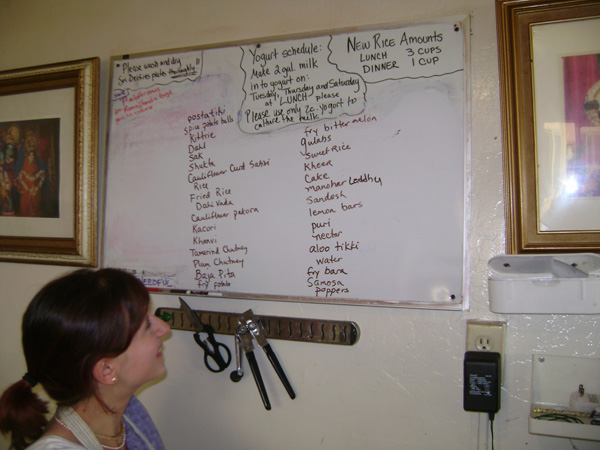 Please wash and dry
Sri Deities pots thankfully!!
Yogurt schedule:
Make 2 gal. milk
into yogurt on:
Tuesday, Thursday and Saturday
at LUNCH please
Please use only 2c. yogurt to
culture the milk.
New Rice Amounts
LUNCH 3 CUPS
DINNER 1 CUP
postatiki
spice potato balls
Kittrie
Dahl
Sak
Shukta
Cauliflower Curd Sabji
Rice
Fried Rice
Dahi Vada
Cauliflower pakora
Kacori
Khanvi
Tamarind Chutney
Plum Chutney
Baja Pita
fry potato
fry bitter melon
gulabs
sweet Rice
Kheer
Cake
manohar Laddhu
Sandesh
lemon bars
puri
nector
aloo tikki
water
fry bara
Samosa
poppers